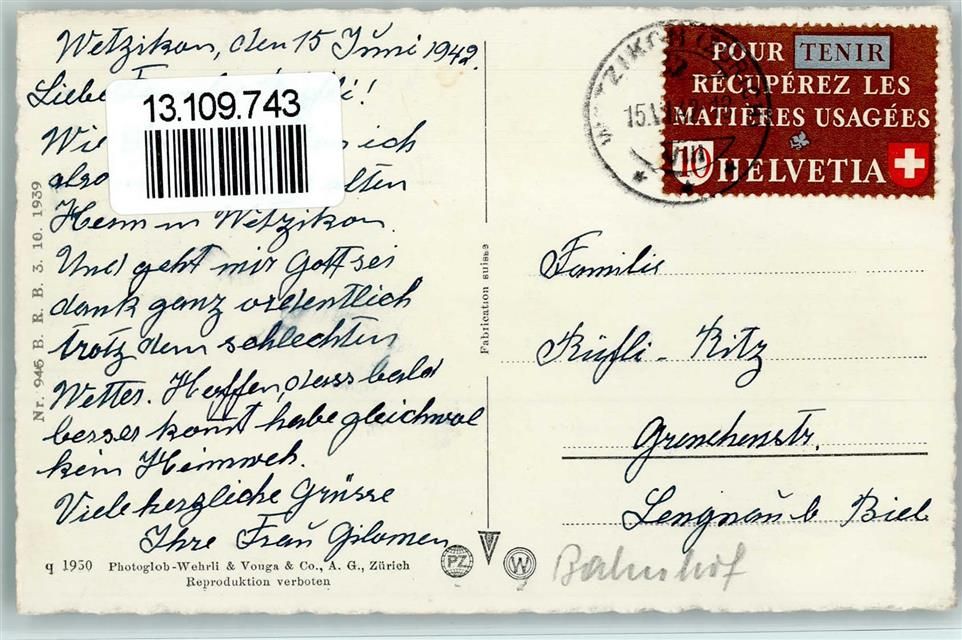 Wetzikon, den 15 Juni 1942.
Liebe
13.109.743
Wie ich
also alten
Heim in Wetzikon.
Und geht mir Gott sei
dank ganz ordentlich
trotz dem schlechten
Wetter. Hoffen, dass bald
besser komt habe gleichwol
kein Heimweh.
Viele herzliche Grüsse
Ihre Frau Gilomen
q 1950 Photoglob-Wehrli & Vouga & Co., A. G., Zürich
Reproduktion verboten
Nr. 945 B. R. B. 3. 10. 1939
Fabrication suisse
PZ
W
POUR TENIR
RÉCUPÉREZ LES
MATIÈRES USAGÉES
10 HELVETIA
WETZIKON
VIII
Familie
Rüfli - Ritz
Grenchenstr.
Lengnau b Biel
Bahnhof